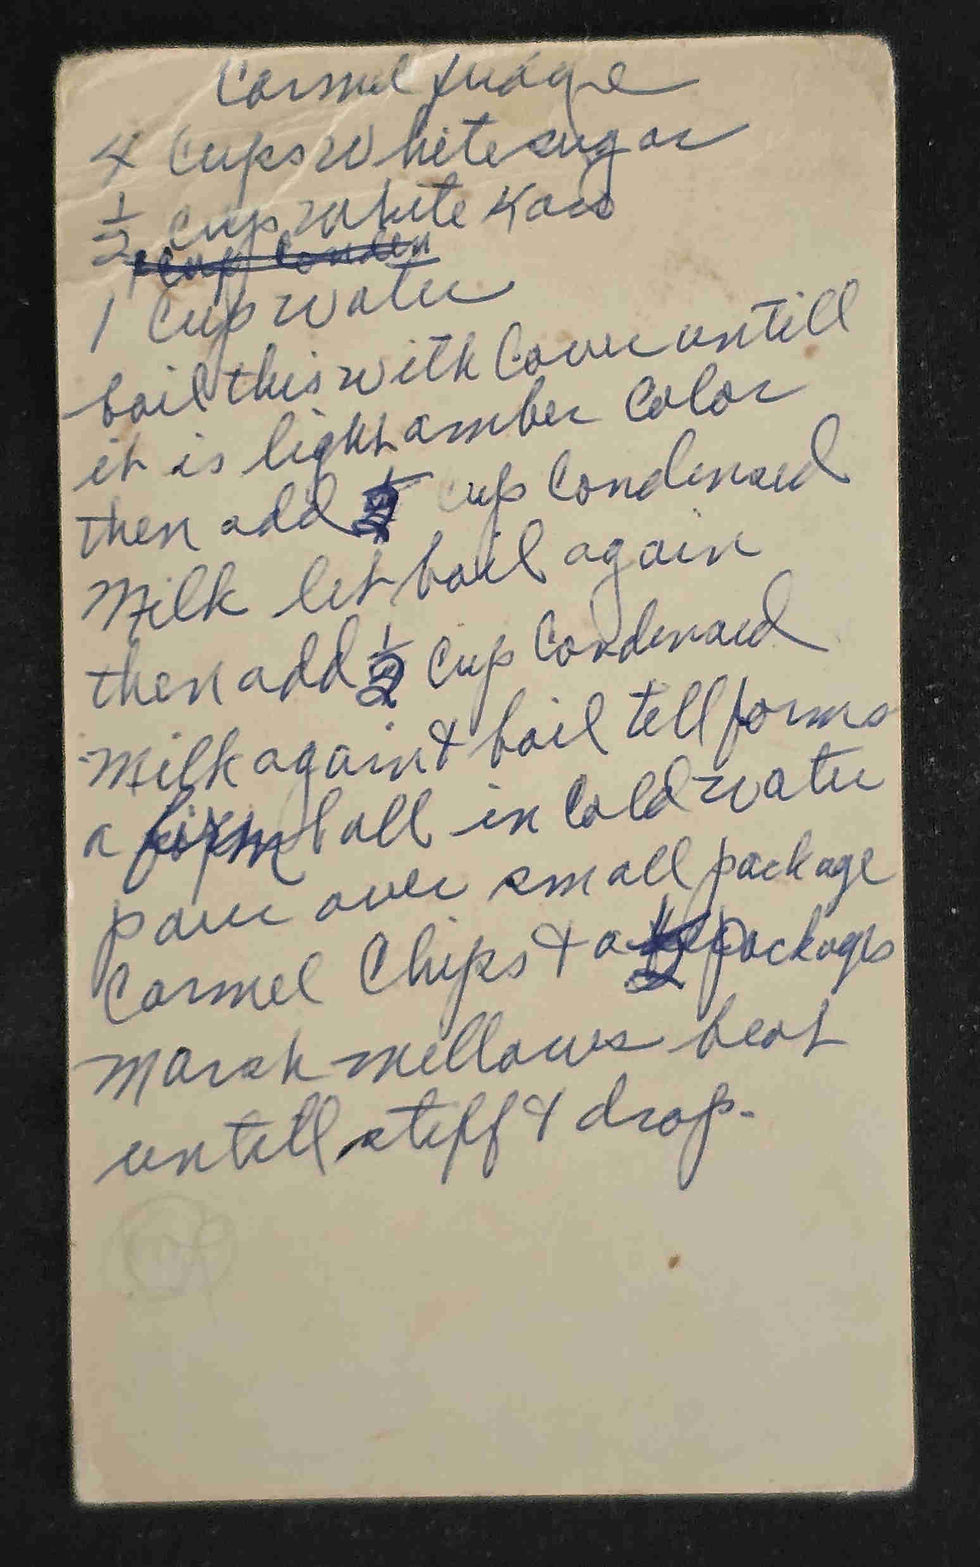 Carmel fudge
4 Cups White sugar
1/2 Cup White Karo
1 Cup Conden
1 Cup water
boil this with Cover untill
it is light amber Color
then add cup Condensed
Milk let boil again
then add 1/2 Cup Condensed
Milk again & boil till forms
a firm ball in Cold water
pour over small package
Carmel Chips & a 1/2 packages
Marsh mellows beat
untill stiff & drop.